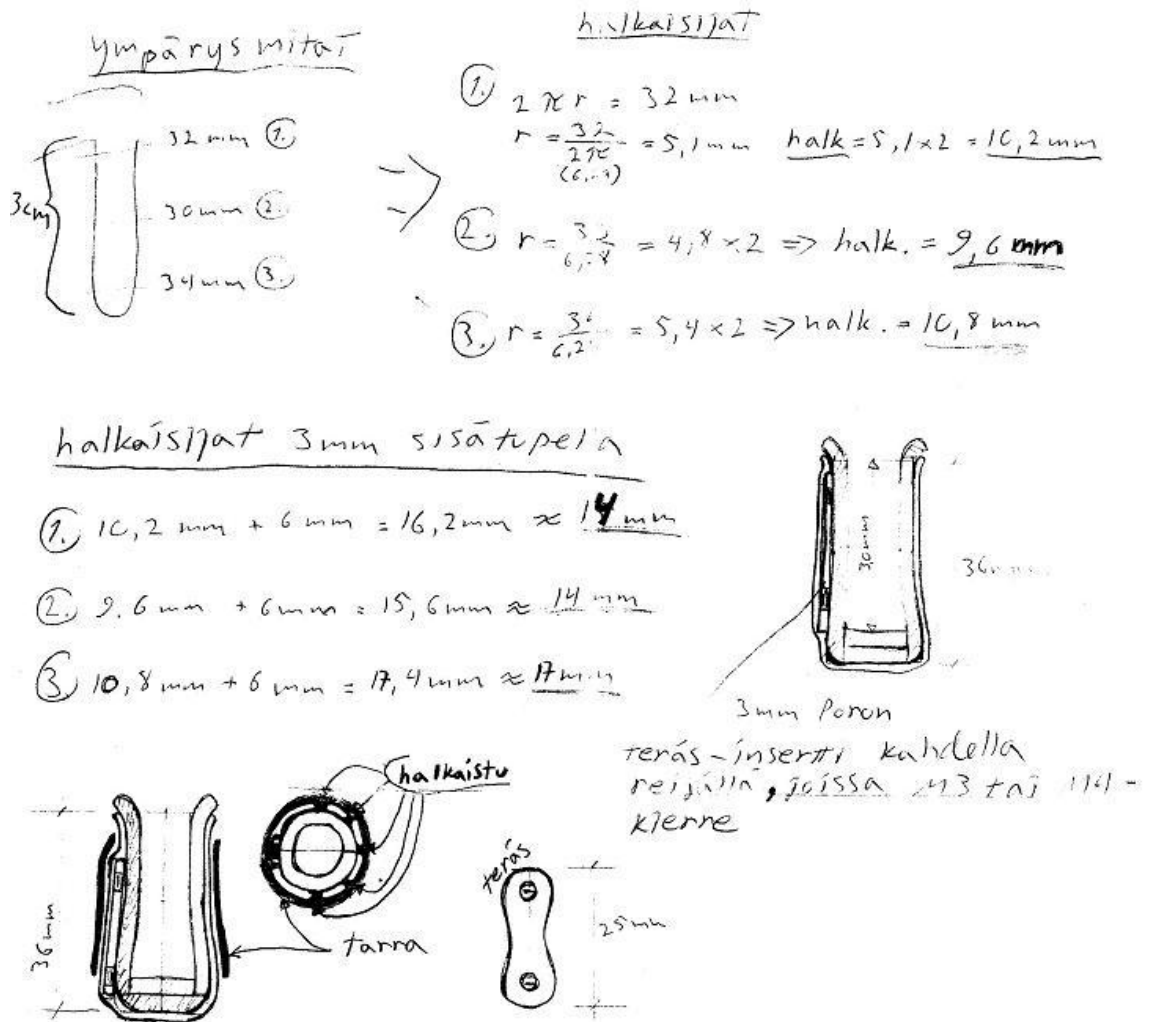 ympärysmitat
32 mm ①.
30 mm ②.
34 mm ③.
3cm
halkaisijat
①. 2 π r = 32 mm
r = 32 / 2π = 5,1 mm halk = 5,1 x 2 = 10,2 mm
②. r = = 4,8 x 2 => halk. = 9,6 mm
③. r = = 5,4 x 2 => halk. = 10,8 mm
halkaisijat 3mm sisätupella
①. 10,2 mm + 6 mm = 16,2 mm ≈ 14 mm
②. 9.6 mm + 6 mm = 15,6 mm ≈ 14 mm
③. 10,8 mm + 6 mm = 17,4 mm ≈ 17 mm
30mm
36mm
3mm Poron
teräs-insertti kahdella
reijällä, joissa M3 tai M4-
kierre
36mm
halkaistu
tarra
teräs
25mm